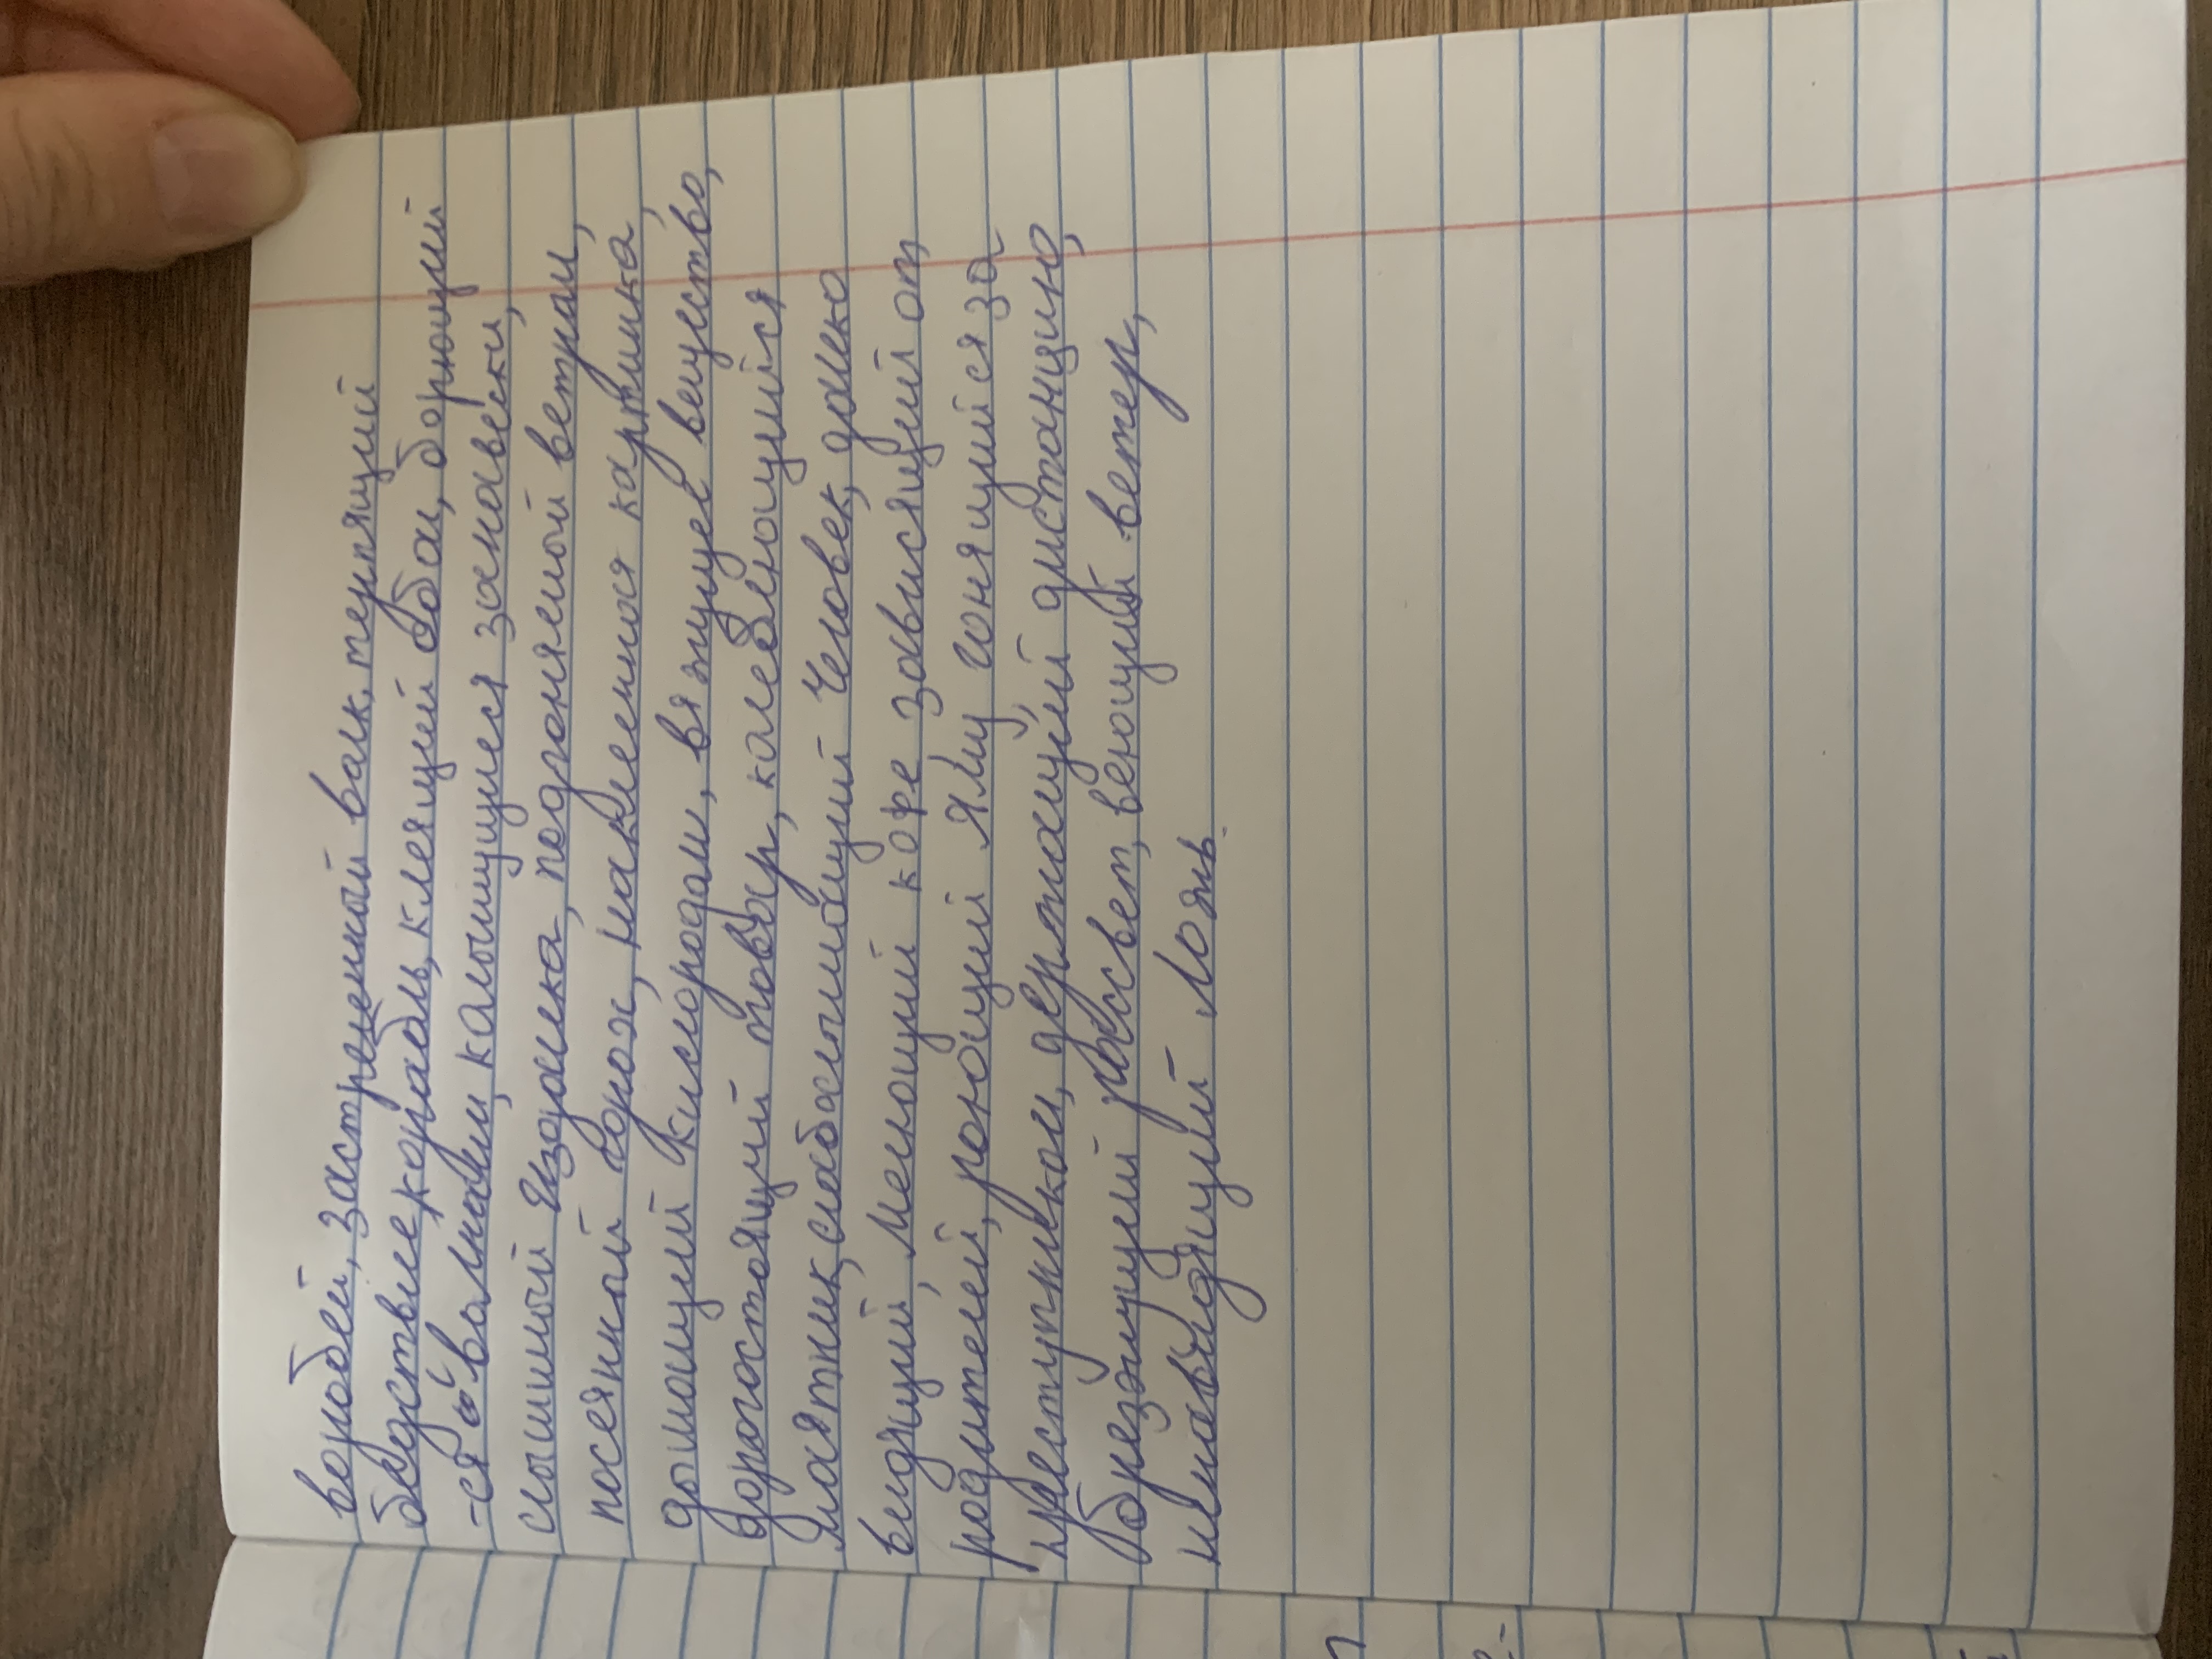 воробей, застреленный волк, терпящий
бедствие корабль, клеящий обои, борющий
-ся с волнами, колышущиеся занавески,
слышимый издалека, подгоняемой ветрам,
посеянный горох, наклеенная картинка,
дышащий кислородом, вяжущее вещество,
дорогостоящий товар, колеблющийся
маятник, слабослышащий человек, далеко
видящий, мелющий кофе зависящий от
родителей, роющий яму гонящийся за
преступником, держащий дистанцию,
брезжущий рассвет, веющий ветер,
ненавидящий ложь.